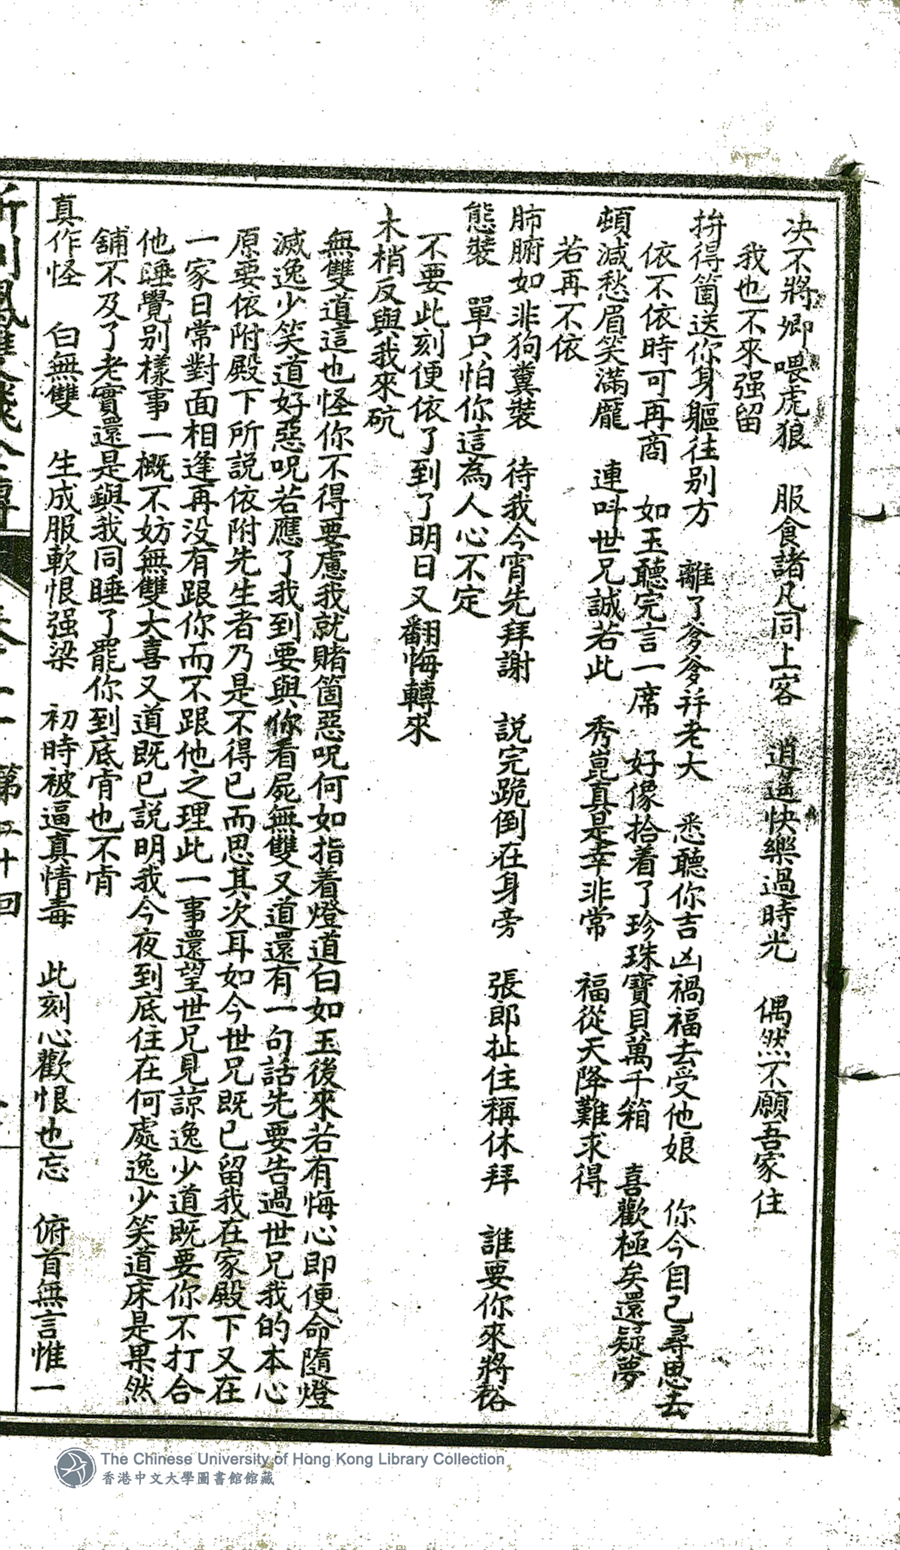 决不將卿喂虎狼　服食諸凡同上客　逍遥快樂過時光　偶然不願吾家住
我也不來强留
拚得箇送你身軀往别方　離了爹爹幷老大　悉聽你吉凶禍福去受他娘　你今自己尋思去
依不依時可再商　如玉聽完言一席　好像拾着了珍珠寶貝萬千箱　喜歡極矣還疑夢
頓減愁眉笑滿龐　連呌世兄誠若此　秀崑真是幸非常　福從天降難求得
若再不依
肺腑如非狗糞裝　待我今宵先拜謝　説完跪倒在身旁　張郎扯住稱休拜　誰要你來將俗
態裝　單只怕你這為人心不定
不要此刻便依了到了明日又翻悔轉來
木梢反與我來砊
無雙道這也怪你不得要慮我就賭箇惡呪何如指着燈道白如玉後來若有悔心即便命隨燈
滅逸少笑道好惡呪若應了我到要與你看屍無雙又道還有一句話先要告過世兄我的本心
原要依附殿下所説依附先生者乃是不得已而思其次耳如今世兄既已留我在家殿下又在
一家日常對面相逢再没有跟你而不跟他之理此一事還望世兄見諒逸少道既要你不打合
他睡覺别樣事一概不妨無雙大喜又道既已説明我今夜到底住在何處逸少笑道床是果然
舖不及了老實還是與我同睡了罷你到底肯也不肯
真作怪　白無雙　生成服軟恨强梁　初時被逼真情毒　此刻心歡恨也忘　俯首無言惟一
第五十回
The Chinese University of Hong Kong Library Collection
香港中文大學圖書館館藏